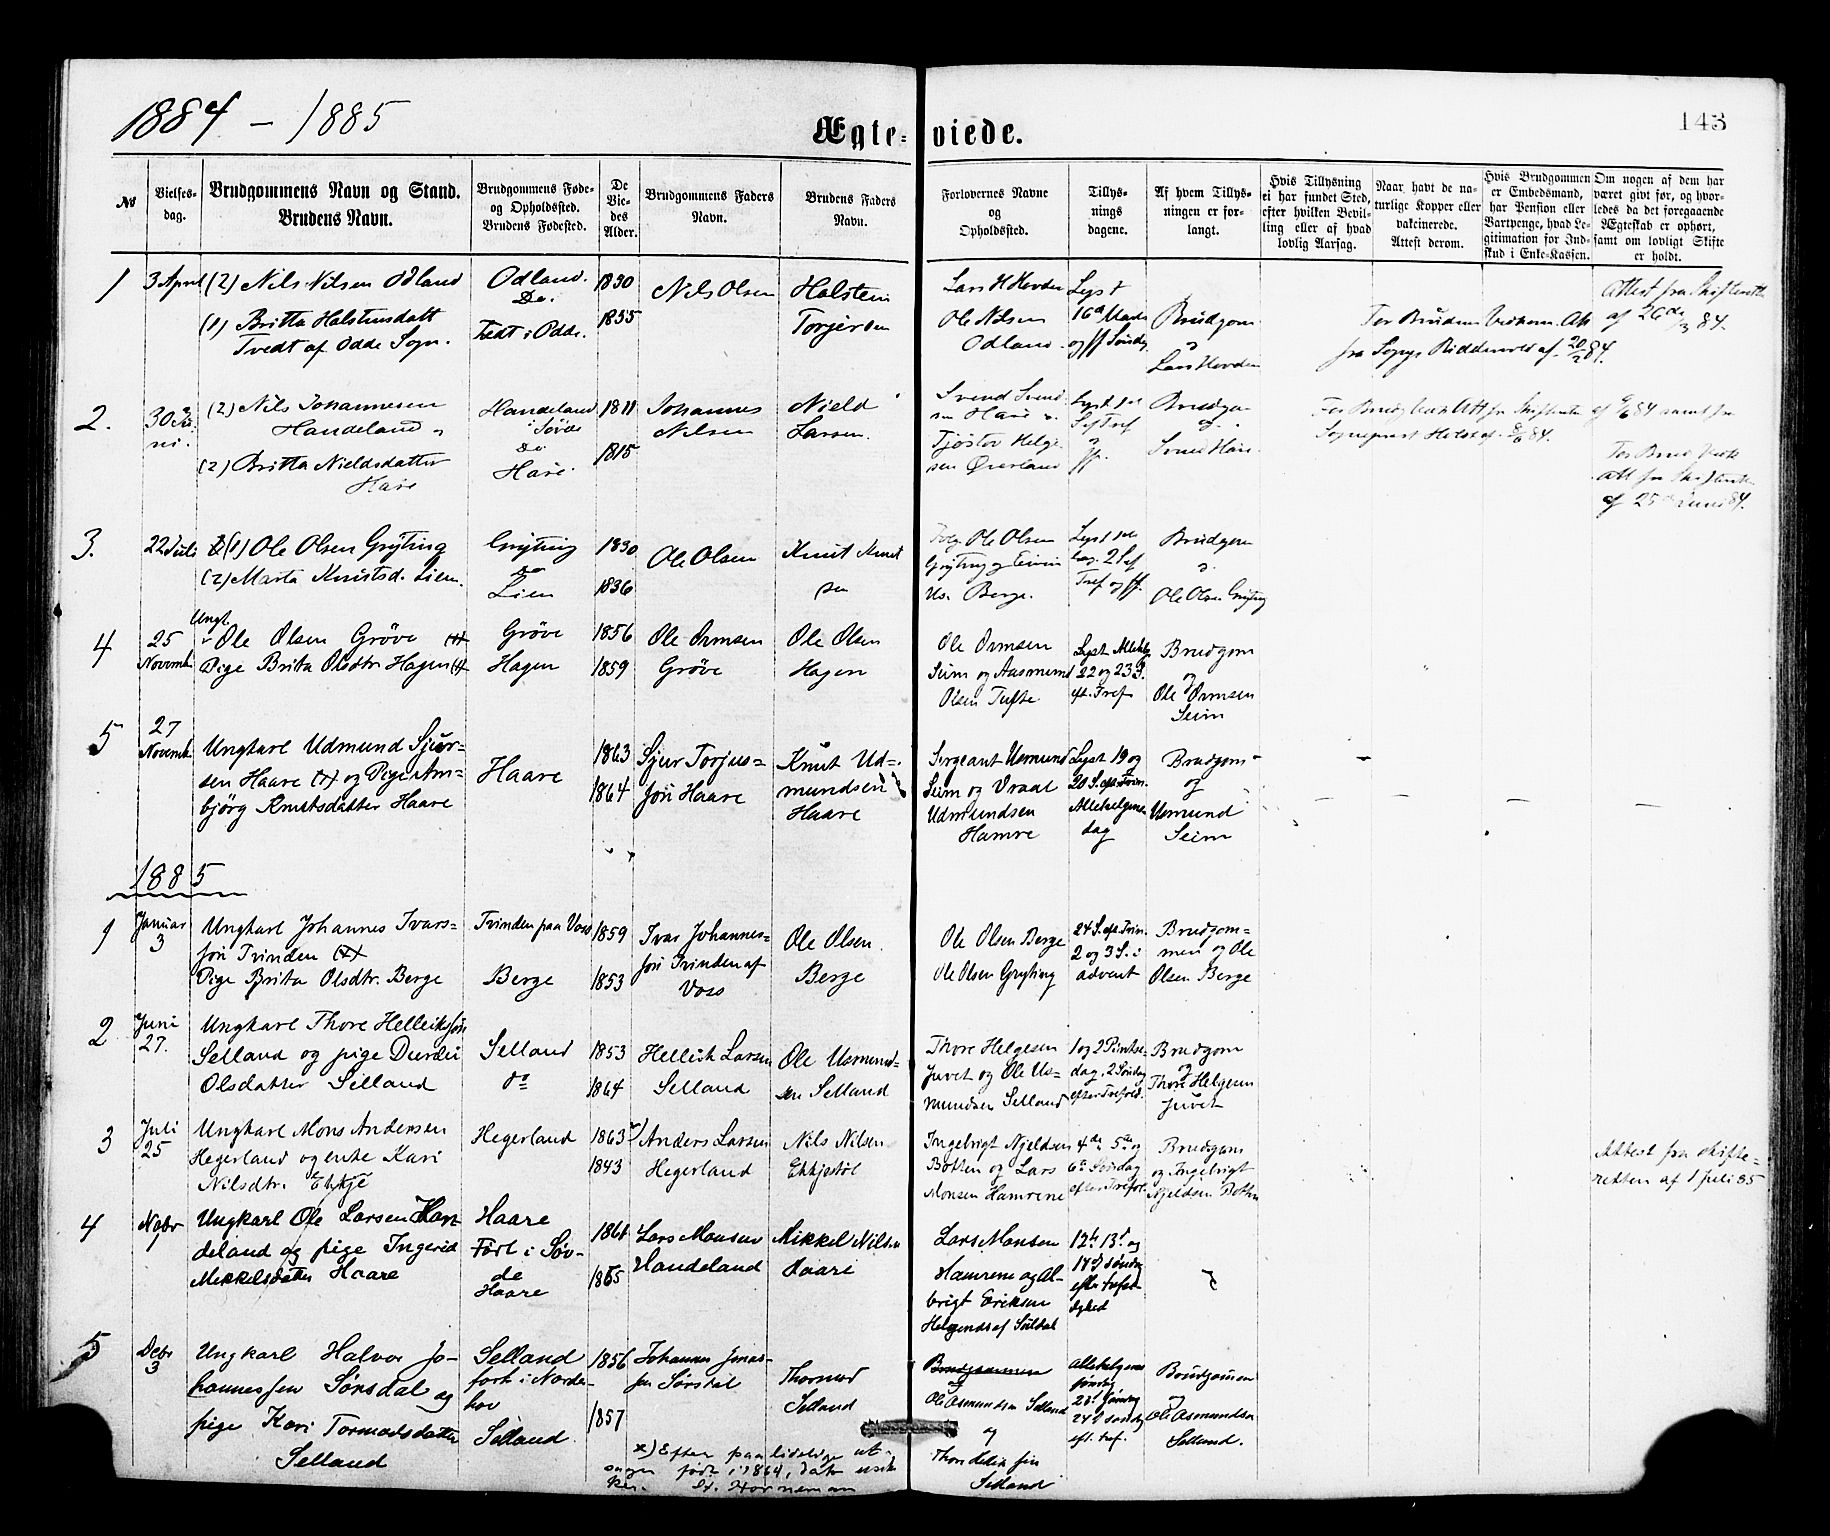 1884 - 1885
Ægte-viede.
143
№
Vielses-
dag.
Brudgommens Navn og Stand.
Brudens Navn.
Brudgommens Føde-
og Opholdssted.
Brudens Fødested.
De
Vie-
des
Alder.
Brudgommens Faders
Navn.
Brudens Faders
Navn.
Forlovernes Navne
og
Opholdssted.
Tillys-
nings
dagene.
Af hvem Tillys-
ningen er for-
langt.
Hvis Tillysning
ei har fundet Sted,
efter hvilken Bevil-
ling eller af hvad
lovlig Aarsag.
Naar havt de na-
turlige Kopper eller
vakcinerede.
Attest derom.
Hvis Brudgommen
er Embedsmand,
har Pension eller
Vartpenge, hvad Le-
gitimation for Ind-
skud i Enke-Kassen.
Om nogen af dem har
været givt før, og hvor-
ledes da det foregaaende
Ægteskab er ophørt,
samt om lovligt Skifte
er holdt.
1
3 April
(2) Nils Nilsen Odland
(1) Britta Halstensdatt
Tvedt af Odde Sogn.
Odland.
Do:
Tvedt i Odde.
1830
1855
Nils Olsen
Halstein
Torgersen
Lars H Hovden
Ole Nilsen
Odland
Lyst
og ff Søndg
Brudgom
Lars Hovden
Attest fra Skifteretten
af 26de/3 84.
2.
30 Ju-
ni.
(2) Nils Johannesen
Handeland
(2) Britta Nieldsdatter
Hare
Handeland
i Søvde
Do
Hare.
1811
1815
Johannes
Nilsen
Nield
Larsen.
Svend Svend-
sen Hare
Tjøstov Helge
sen Øverland
ff.
Brudgom
og
Svend Hare
af 25de Juni 84.
3.
22 Juli
(1) Ole Olsen Gryting
(2) Marta Knutsd. Lien.
Gryting
do
Lien
1830
1836
Ole Olsen
Knut Knut
sen
Ole Olsen
Gryting og Eivin
Berge.
Tref og ff.
Brudgom
Ole Olsen Gryting
4
25
Novemb.
Ungk.
Ole Olsen Grøve (1)
Pige Brita Olsdtr Hagen (1)
Grøve
Hagen
1856
1859
Ole Ormsen
Grøve
Ole Olsen
Hagen
Ole Ormsen
Seim og Aasmund
Olsen Tufte
Lyst Allehelg
22 og 23 S.
eft. Tref
Brudgom
og
Ole Ormsen
Seim
5
27
Novemb.
Ungkarl Udmund Sjur-
sen Haare (1) og Pige Am-
björg Knutsdatter Haare
Haare
1863
1864
Sjur Torjus-
søn Haare
Knut Ud-
mundsen
Haare
Sergeant Usmund
Seim og Vraal
Udmundsen
Hamre
Lyst 19 og
20 S. eft. Trin.
Allehelgens
dag
Brudgom
og
Usmund
Seim
1885
1
Januar
3
Ungkarl Johannes Ivars-
søn Tvinden (1)
Pige Brita Olsdtr. Berge
Tvinden paa Voss
Berge
1859
1853
Ivar Johannes-
søn Tvinden af
Voss
Ole Olsen
Berge
Ole Olsen Berge
Ole Olsen Gryting
24 S. eft. Trin.
2 og 3 S. i
advent
Brudgom-
men og Ole
Olsen Berge
2
Juni
27.
Ungkarl Thore Helleiksøn
Selland og pige Durdei
Olsdatter Selland
Selland
do
1853
1864
Helleik Larsen
Selland
Ole Usmund-
sen Selland
Thore Helgesen
Juvet og Ole Us-
mundsen Selland
1 og 2 Pintse-
dag, 2 Søndag
efter Trefold.
Brudgom
og
Thore Helgesen
Juvet
3
Juli
25
Ungkarl Mons Andersen
Hegerland og enke Kari
Nilsdtr. Ekkje
Hegerland
1863 x)
1843
Anders Larsen
Hegerland
Nils Nilsen
Ekkjestøl
Ingebrigt Njeldsen
Botten og Lars
Monsen Hamrene
4de 5te og
6te Søndag
efter Trefol.
Brudgom
og Ingebrigt
Njeldsen Botten
Attest fra skifte-
retten af 1 juli 85
4
Novbr
1
Ungkarl Ole Larsen Han
deland og pige Ingerid
Mikkelsdatter Haare
Haare
Født i Søv-
de
Haare
1861
1865
Lars Monsen
Handeland
Mikkel Nilsen
Haare
Lars Monsen
Hamrene og Al-
brigt Eriksen
Helgends af Suldal
12te 13de og
14de søndag
efter trefol
dighed
5
Decbr
3
Ungkarl Halvor Jo-
hannessen Sørsdal og
pige Kari Tormodsdatter
Selland
Selland
født i Norde-
hov
Selland
1856
1857
Johannes Jonas-
sen Sørsdal
Thormod
Selland
Brudgommen
og
Ole Asmundsen Selland
og
Selland
Allehelgens
søndag
23de søndag
24de søndag
eft. tref.
Brudgommen
og
Ole Asmundsen
Selland.
x) Efter paalidelige ut-
sagn født i 1864, dato usik
ker. St. Horneman